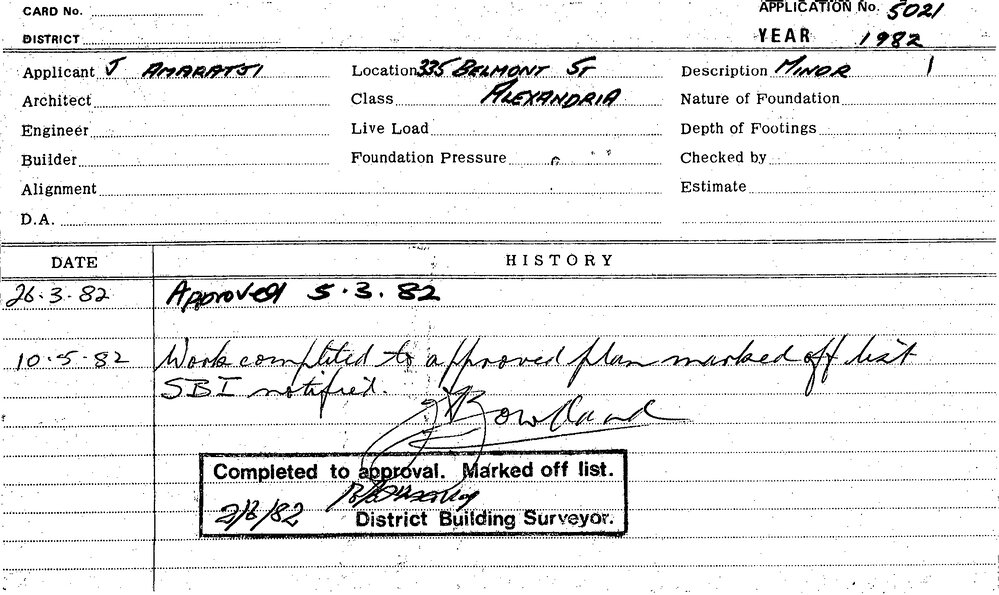 CARD No.
APPLICATION No. 5021
DISTRICT
YEAR 1982
Applicant J AMARATJI Location 335 BELMONT ST Description MINOR 1
Architect Class ALEXANDRIA Nature of Foundation
Engineer Live Load Depth of Footings
Builder Foundation Pressure Checked by
Alignment Estimate
D.A.
DATE HISTORY
26.3.82 Approved 5.3.82
10.5.82 Work completed to approved plan marked off list
SBI notified.
Completed to approval. Marked off list.
2/6/82 District Building Surveyor.